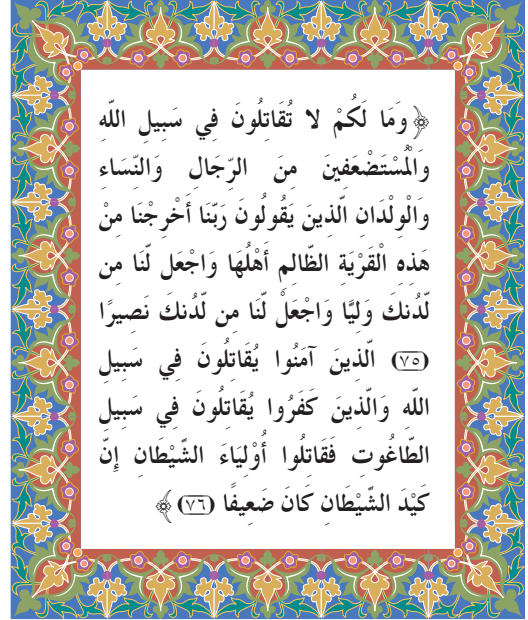 ﴿ وَمَا لَكُمْ لا تُقَاتِلُونَ فِي سَبِيلِ اللّهِ
وَالْمُسْتَضْعَفِينَ مِنَ الرِّجَالِ وَالنِّسَاءِ
وَالْوِلْدَانِ الَّذِينَ يَقُولُونَ رَبَّنَا أَخْرِجْنَا مِنْ
هَذِهِ الْقَرْيَةِ الظَّالِمِ أَهْلُهَا وَاجْعَل لَّنَا مِن
لَّدُنكَ وَلِيًّا وَاجْعَلْ لَّنَا مِن لَّدُنكَ نَصِيرًا
(٧٥) الَّذِينَ آمَنُوا يُقَاتِلُونَ فِي سَبِيلِ
اللّهِ وَالَّذِينَ كَفَرُوا يُقَاتِلُونَ فِي سَبِيلِ
الطَّاغُوتِ فَقَاتِلُوا أَوْلِيَاءَ الشَّيْطَانِ إِنَّ
كَيْدَ الشَّيْطَانِ كَانَ ضَعِيفًا (٧٦) ﴾